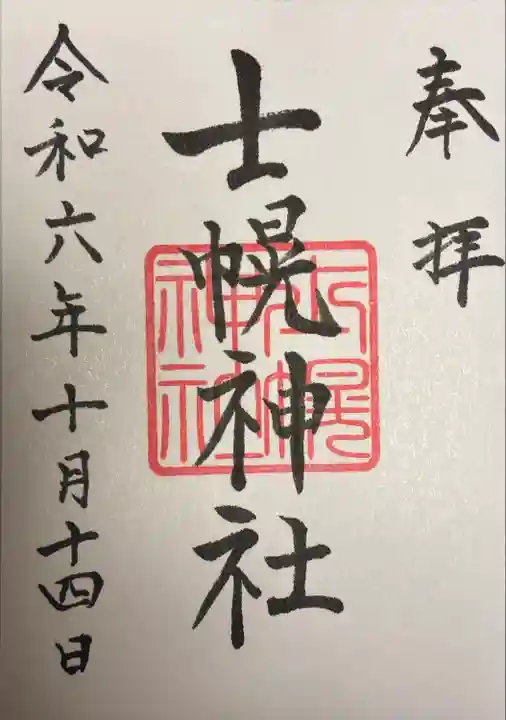 奉拝
士幌神社
士幌
神社
令和六年十月十四日